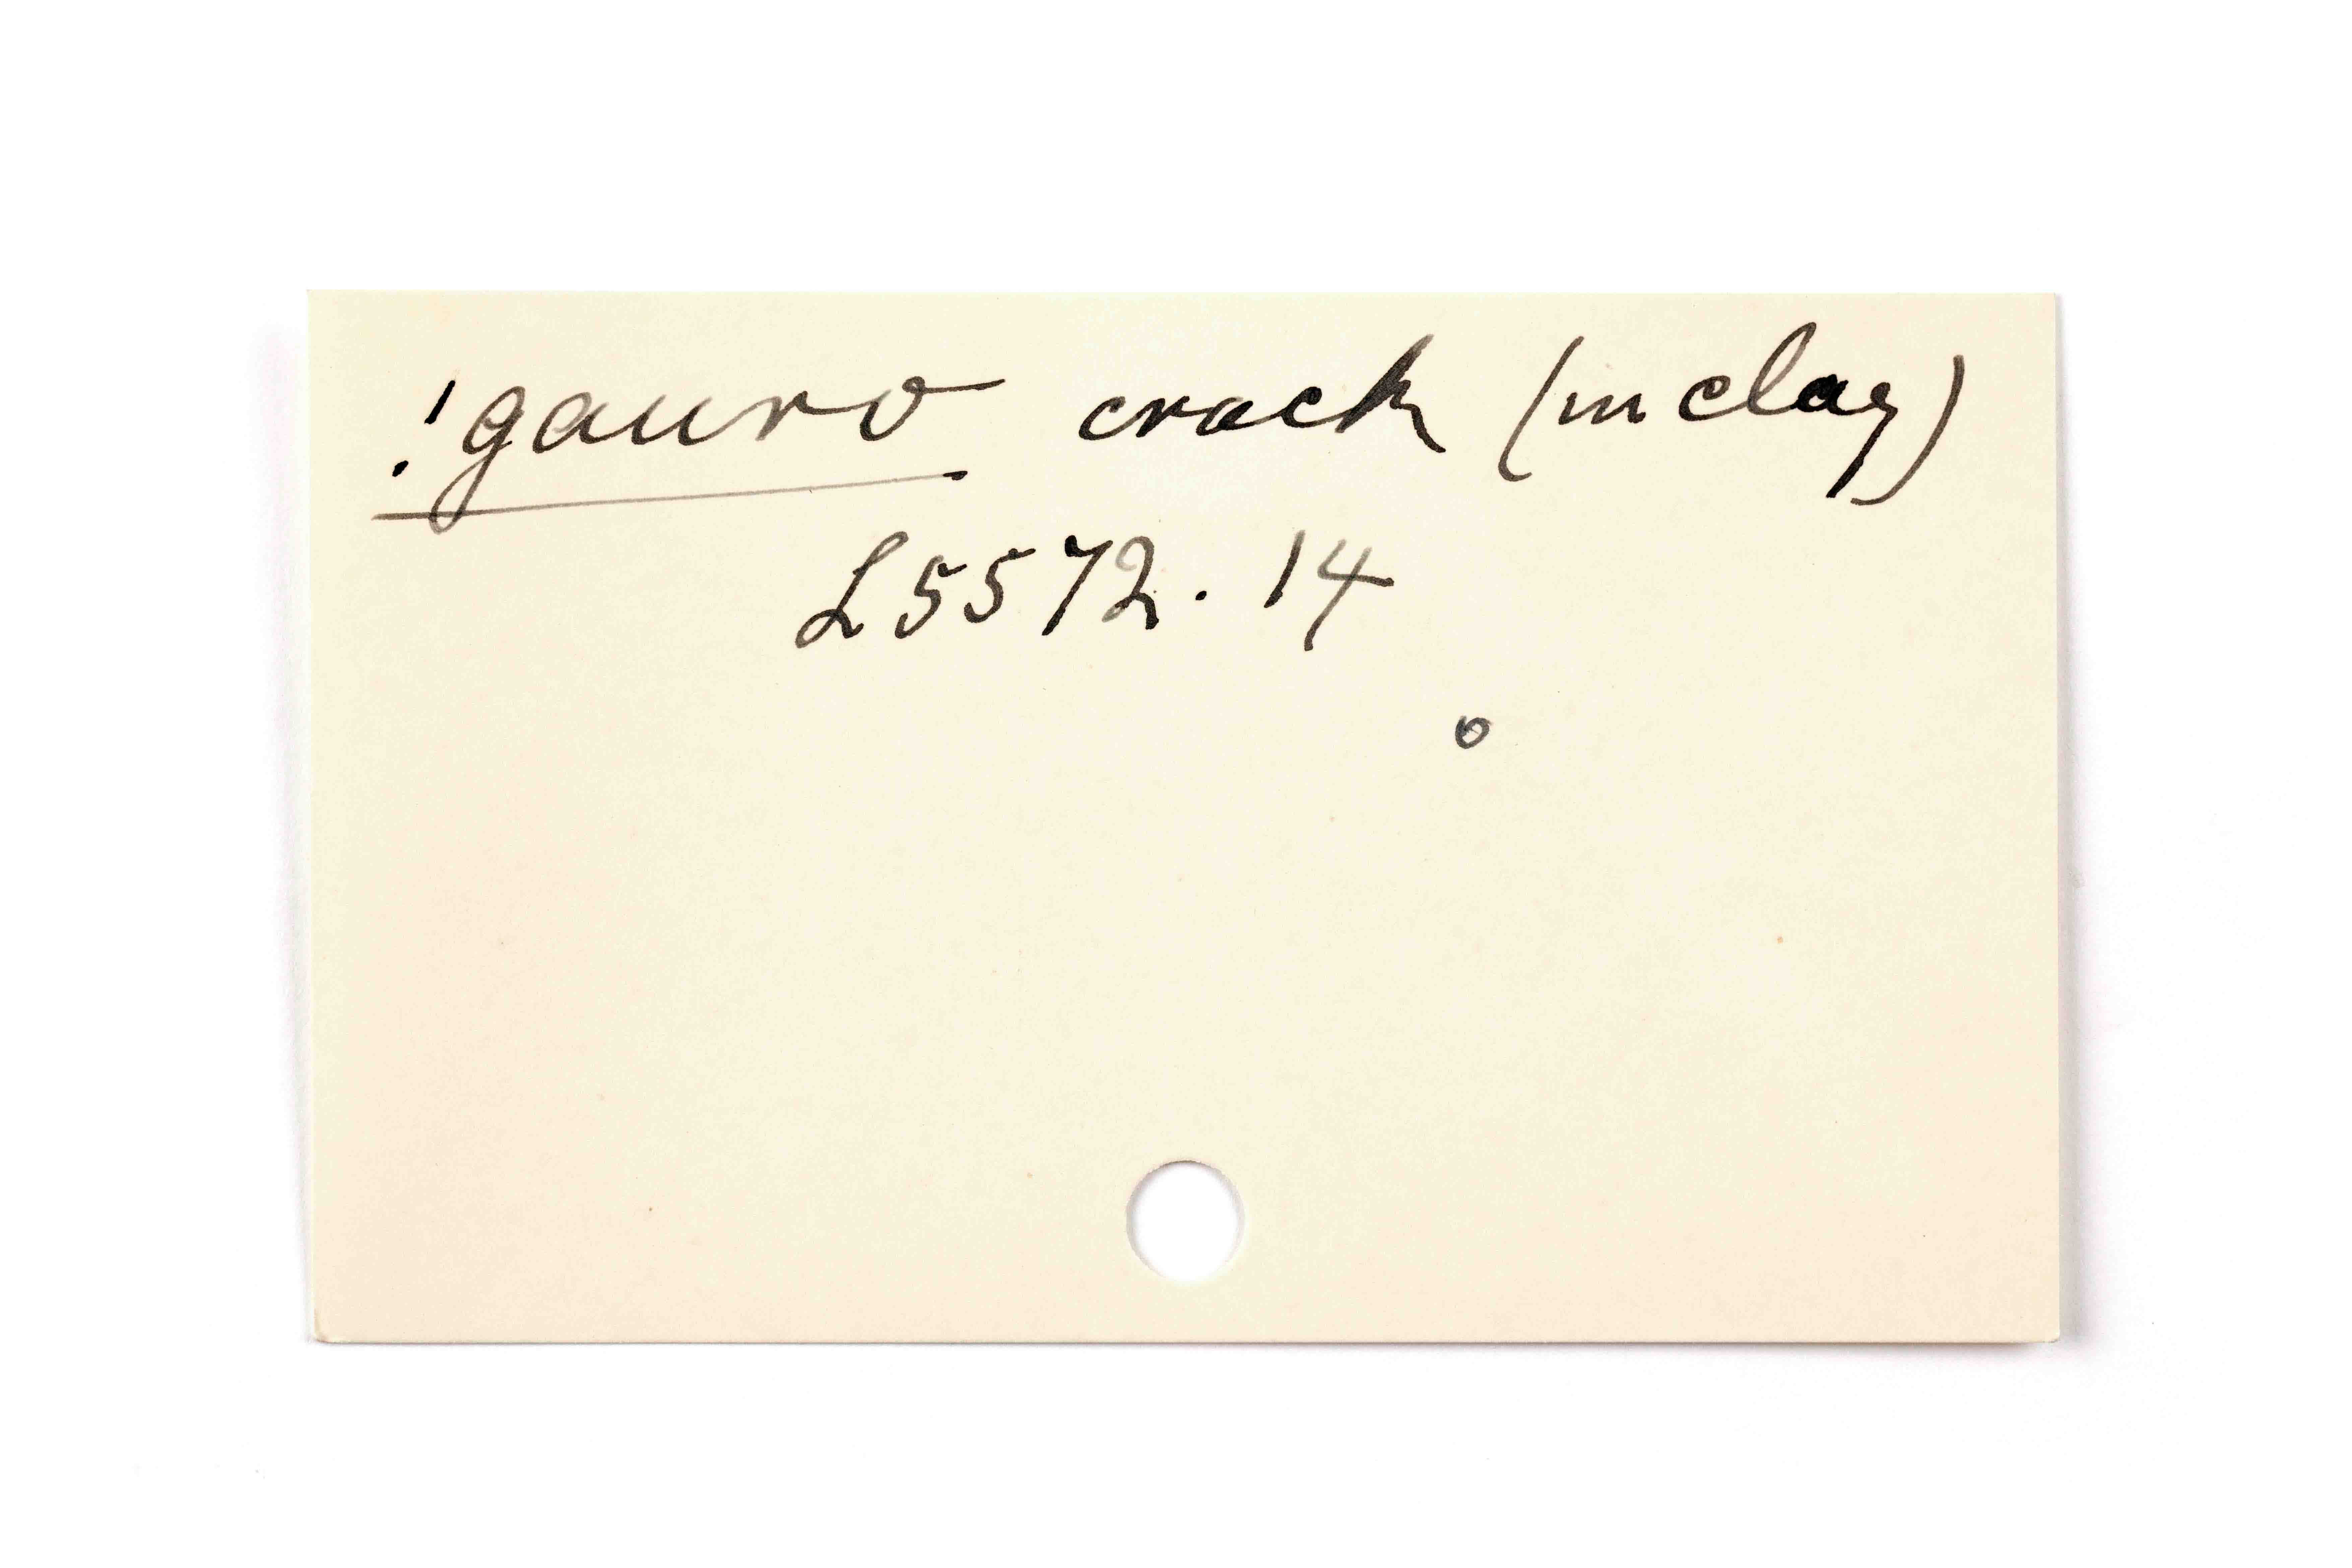 !gauro crack (in clay)
L5572.14
o